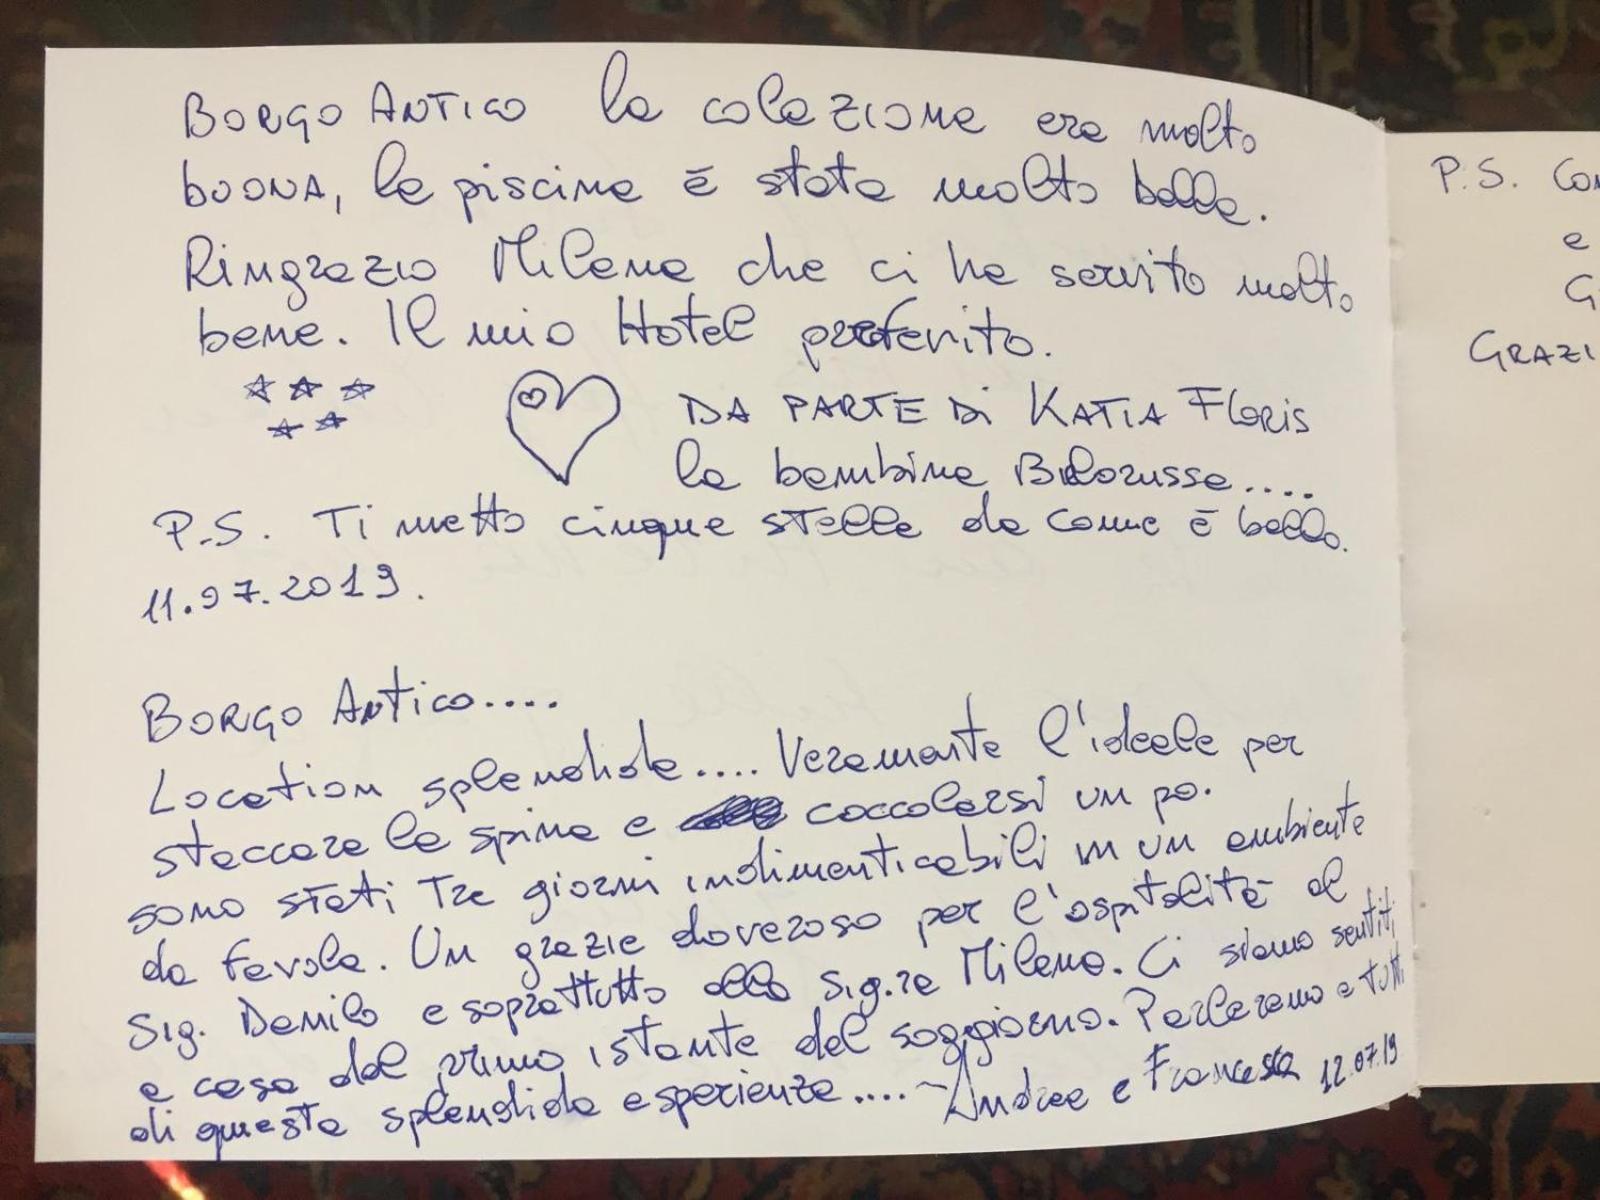 BORGO ANTICO la colazione era molto
buona, la piscina è stata molto bella.
Ringrazio Milena che ci ha servito molto
bene. Il mio Hotel preferito.
DA PARTE Di KATIA Floris
la bambina Bilorussa....
P.S. Ti metto cinque stelle da come è bello.
11.07.2019.
BORGO Antico....
Location splendida.... Veramente l'ideale per
staccare la spina e coccolarsi un po.
sono stati tre giorni indimenticabili in un ambiente
da favola. Un grazie doveroso per l'ospitalità al
Sig. Danilo e soprattutto alla Sig.ra Milena. Ci siamo sentiti
a casa dal primo istante del soggiorno. Parleremo a tutti
di questa splendida esperienza.... Andrea e Francesca 12.07.19
P.S. Con
e
G
GRAZI